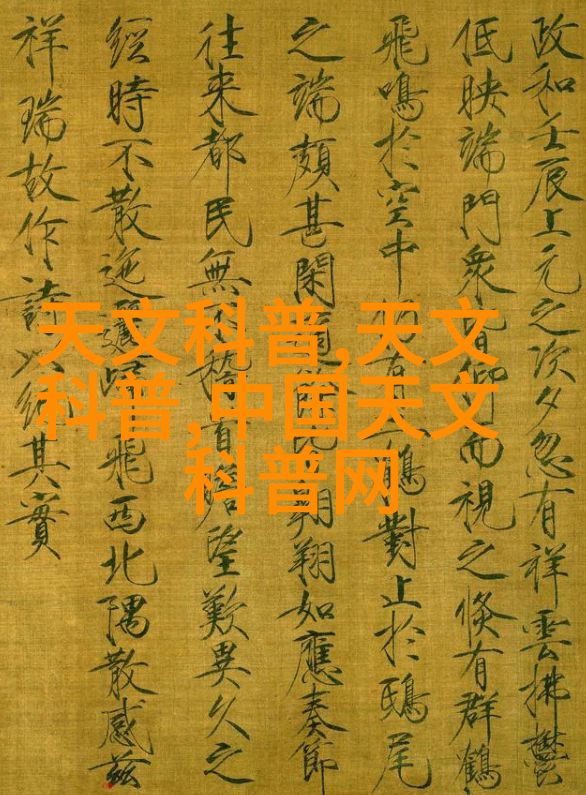 政和壬辰上元之次夕忽有祥雲拂鬱
低映端門衆皆仰而視之倏有群鶴
飛鳴於空中仍有鶴對止於鴟尾
之端頗甚閑適餘皆翱翔如應奏節
往來都民無不稽瞻望歎異久之
經時不散迤邐歸飛西北隅散感茲
祥瑞故作詩以紀其實
天文科普,天文
科普,中国天文
科普网